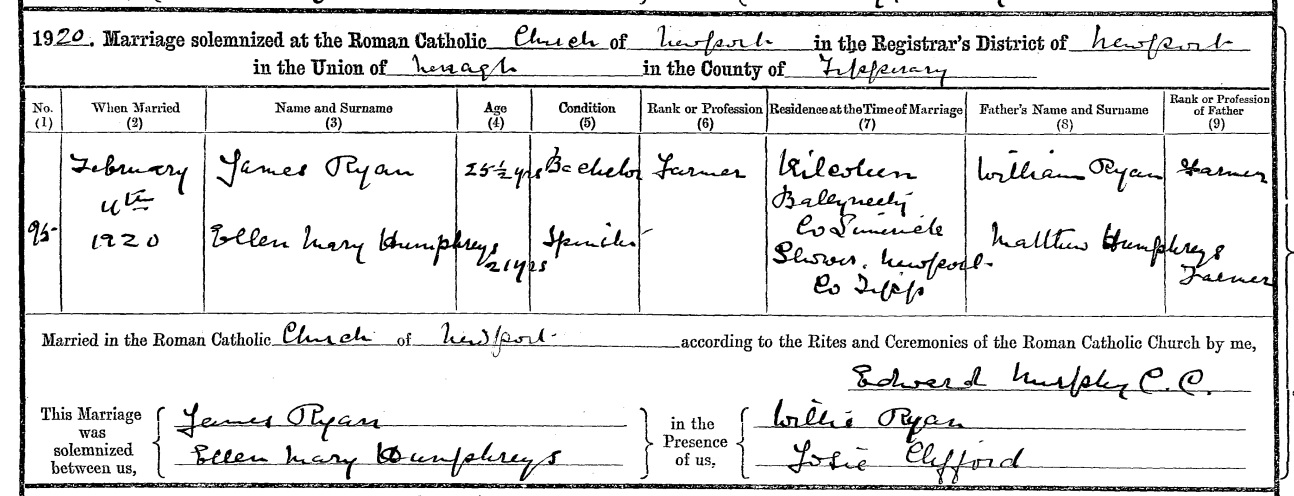 1920. Marriage solemnized at the Roman Catholic Church of Newport in the Registrar's District of Newport
in the Union of Nenagh in the County of Tipperary
No. (1) When Married (2) Name and Surname (3) Age (4) Condition (5) Rank or Profession (6) Residence at the Time of Marriage (7) Father's Name and Surname (8) Rank or Profession of Father (9)
February 4th 1920 James Ryan 25½ yrs Bachelor Farmer Kilcolien Co Limerick William Ryan Farmer
95 Ellen Mary Humphreys 21 yrs Spinster Shower, Newport Co Tipp Matthew Humphreys Farmer
Married in the Roman Catholic Church of Newport according to the Rites and Ceremonies of the Roman Catholic Church by me,
Edward Murphy C.C.
This Marriage was solemnized between us, James Ryan in the Presence of us, Willie Ryan
Ellen Mary Humphreys Josie Clifford